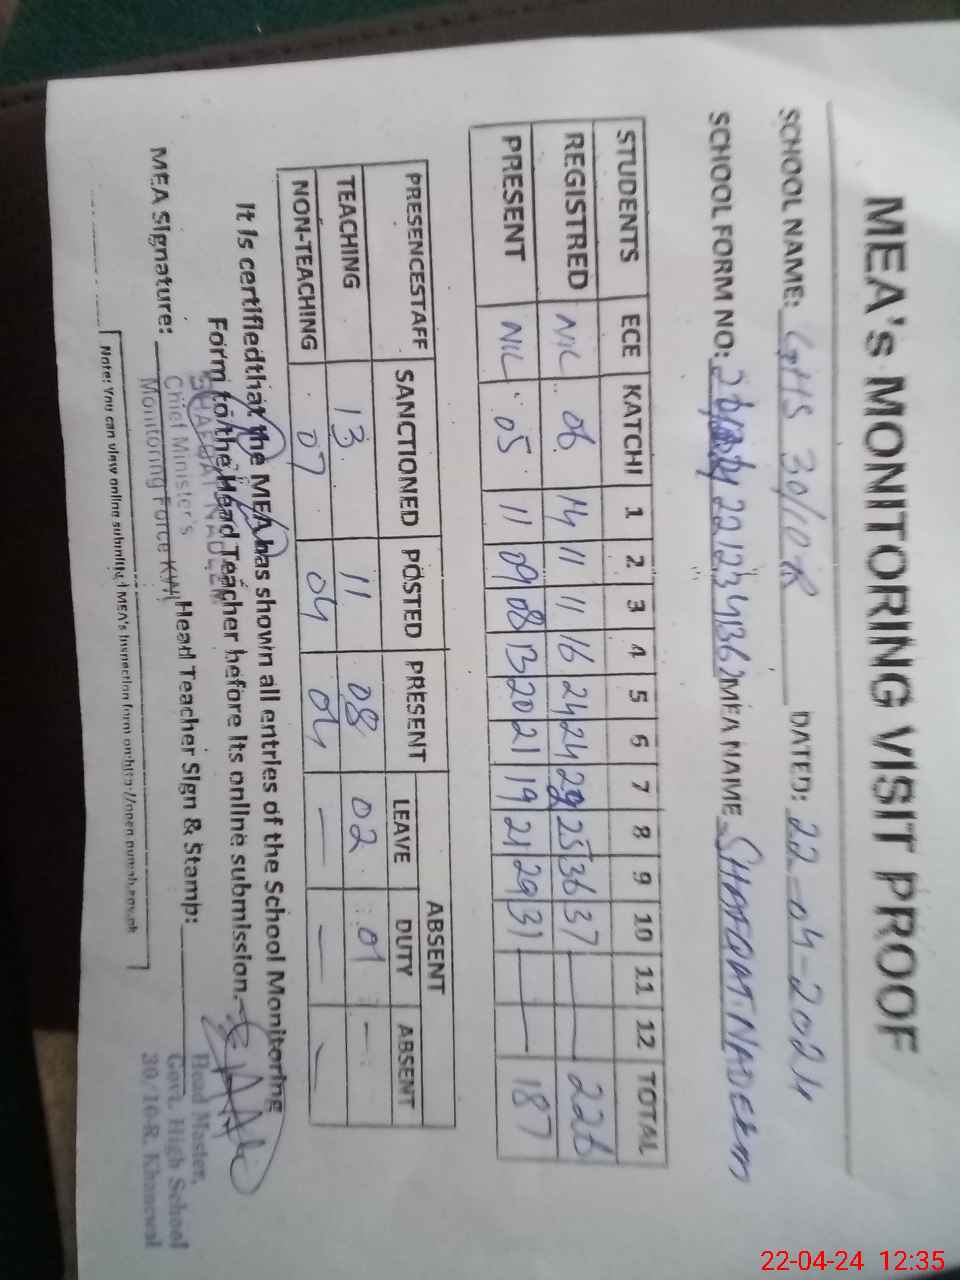 MEA's MONITORING VISIT PROOF
SCHOOL NAME: GHS 30/10R DATED: 22-04-2024
SCHOOL FORM NO: MEA NAME SHAFQAT NADEEM
STUDENTS ECE KATCHI 1 2 3 4 5 6 7 8 9 10 11 12 TOTAL
REGISTRED NIL 06 14 11 11 16 24 24 29 25 36 37 — — 226
PRESENT NIL 05 11 09 08 13 20 21 19 21 29 31 — — 187
PRESENCESTAFF SANCTIONED POSTED PRESENT ABSENT
LEAVE DUTY ABSENT
TEACHING 13 11 08 02 01 -
NON-TEACHING 07 04 04 — — —
It is certifiedthat the MEA has shown all entries of the School Monitoring
Form to the Head Teacher before its online submission.
SHAFQAT NADEEM
MEA Signature: Head Teacher Sign & Stamp:
Chief Minister's
Monitoring Force KWL
Head Master,
Govt. High School
30/10-R. Khanewal
Note: You can view online submitted MEA's inspection form on http://open.punjab.gov.pk
22-04-24 12:35